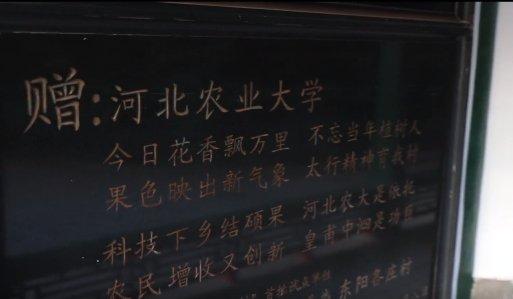 赠:河北农业大学
今日花香飘万里 不忘当年植树人
果色映出新气象 太行精神育我村
科技下乡结硕果 河北农大是依托
农民增收又创新 皇甫中泗是功臣
东阳各庄村